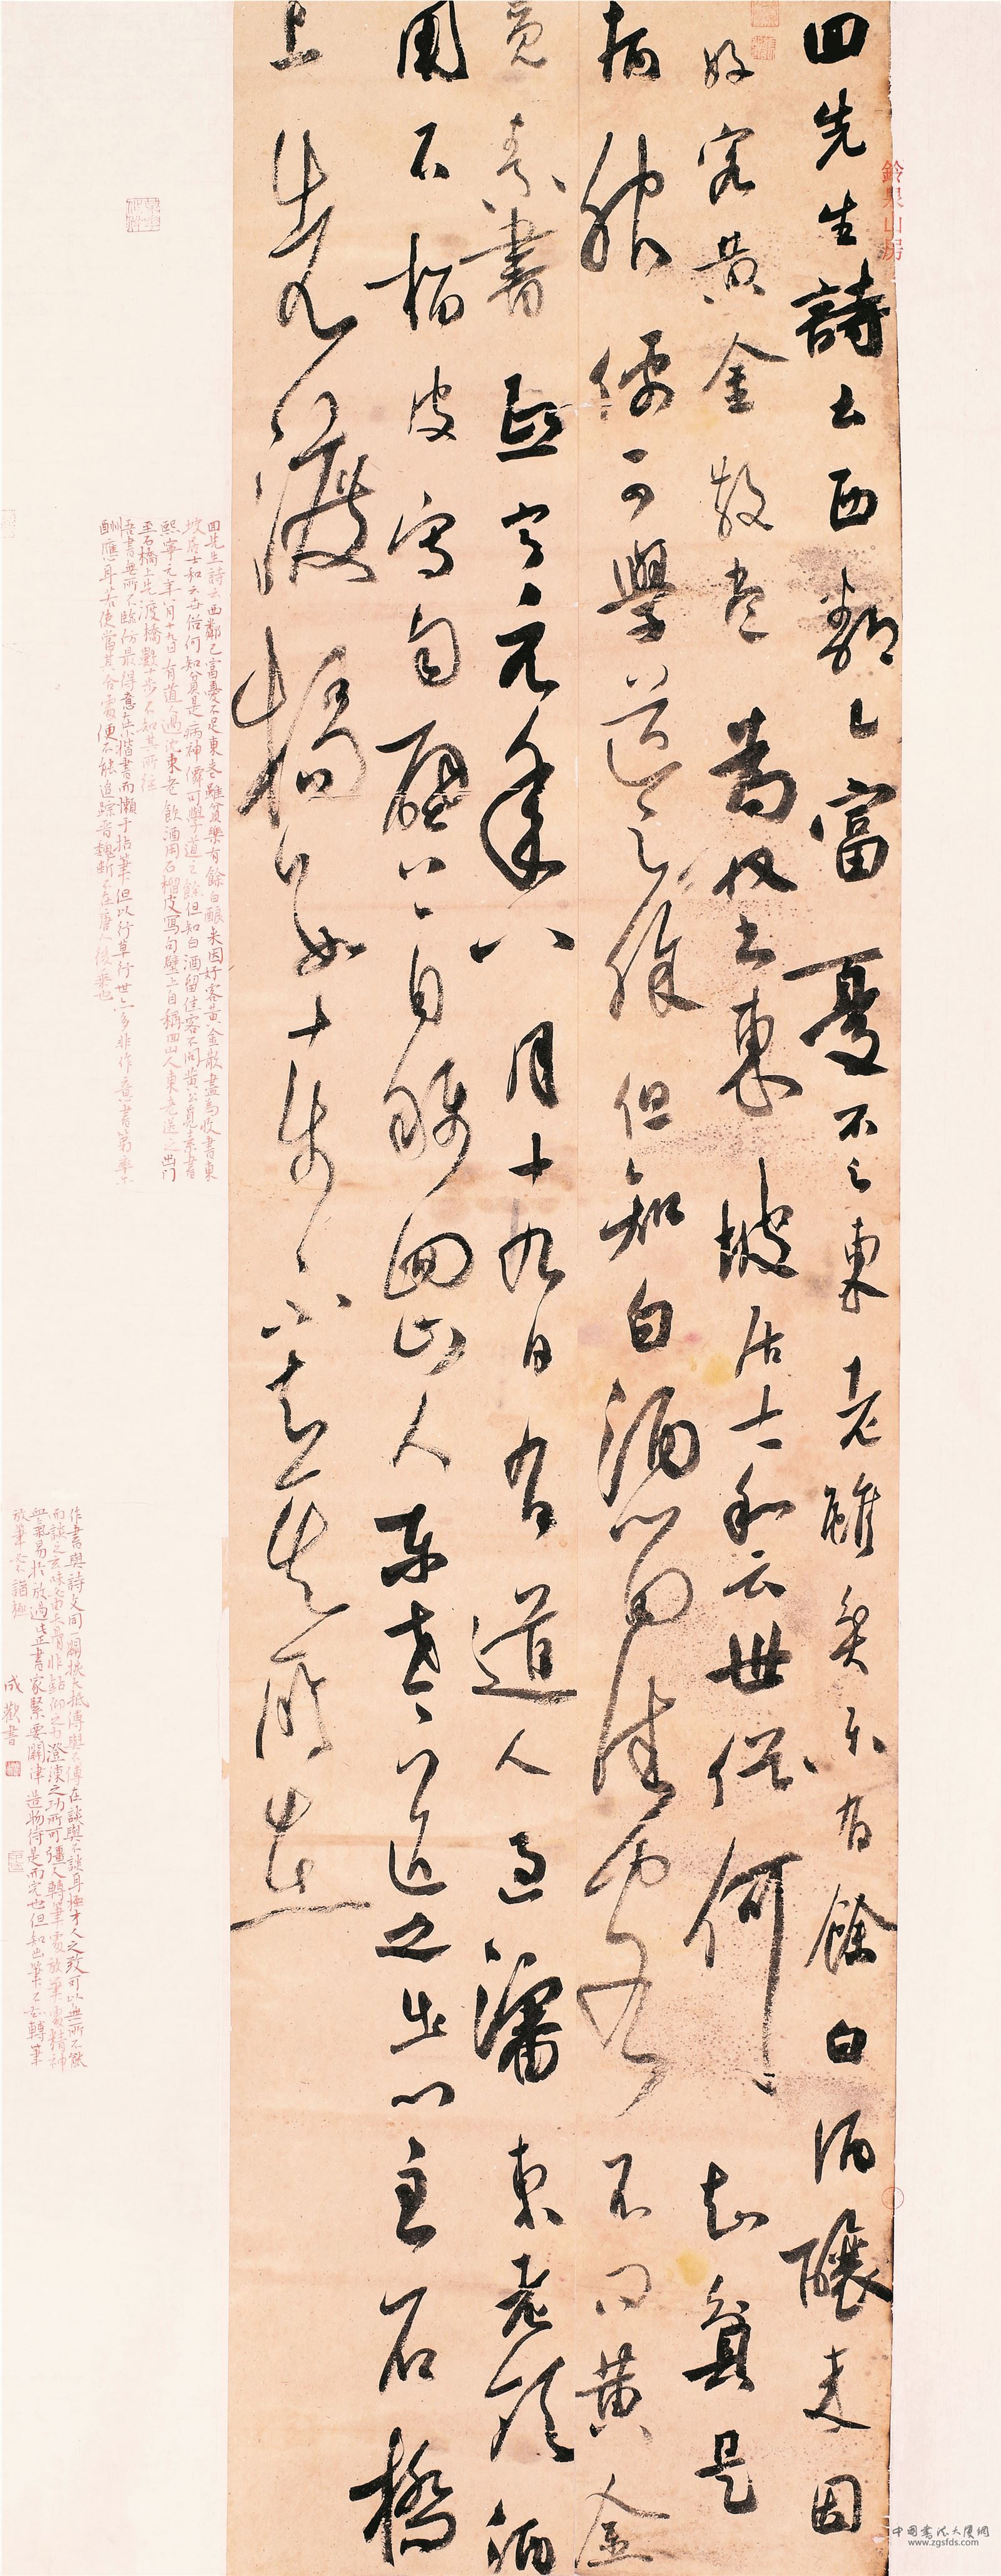 回先生詩云西鄰已富憂不足東老雖貧樂有餘白酒釀來因
好客黃金散盡為收書東坡居士和云世俗何知貧是
病神僊可學道之餘但知白酒留佳客不問黃公
覓素書熙寧元年八月十九日有道人過瀋東老飲酒
用石榴皮寫句壁上自稱回山人東老送之出門至石橋
上先渡橋數十步不知其所在
鈐泉山房
回先生詩云西鄰已富憂不足東老雖貧樂有餘白釀來因好客黃金散盡為收書東
坡居士和云世俗何知貧是病神僊可學道之餘但知白酒留佳客不問黃公覓素書
熙寧元年八月十九日有道人過沈東老飲酒用石榴皮寫句壁上自稱回山人東老送之出門
至石橋上先渡橋數十步不知其所往
吾書無所不臨仿最得意在小楷書而懶于拈筆但以行草行世亦多非作意書第率尒
酬應耳若使當其合處便不能追踪晉魏斷不在唐人後乘也
作書與詩文同一關捩大抵傳與不傳在淡與不淡耳極才人之致可以無所不能
而淡之玄味必由天骨非鑽仰之力澄練之功所可彊人轉筆處放筆處精神
無輕易於放過此正書家緊要關津造物待是而完也但知出筆不知轉筆
放筆終不詣極
成歡書
中国书法大厦网
www.zgsfds.com